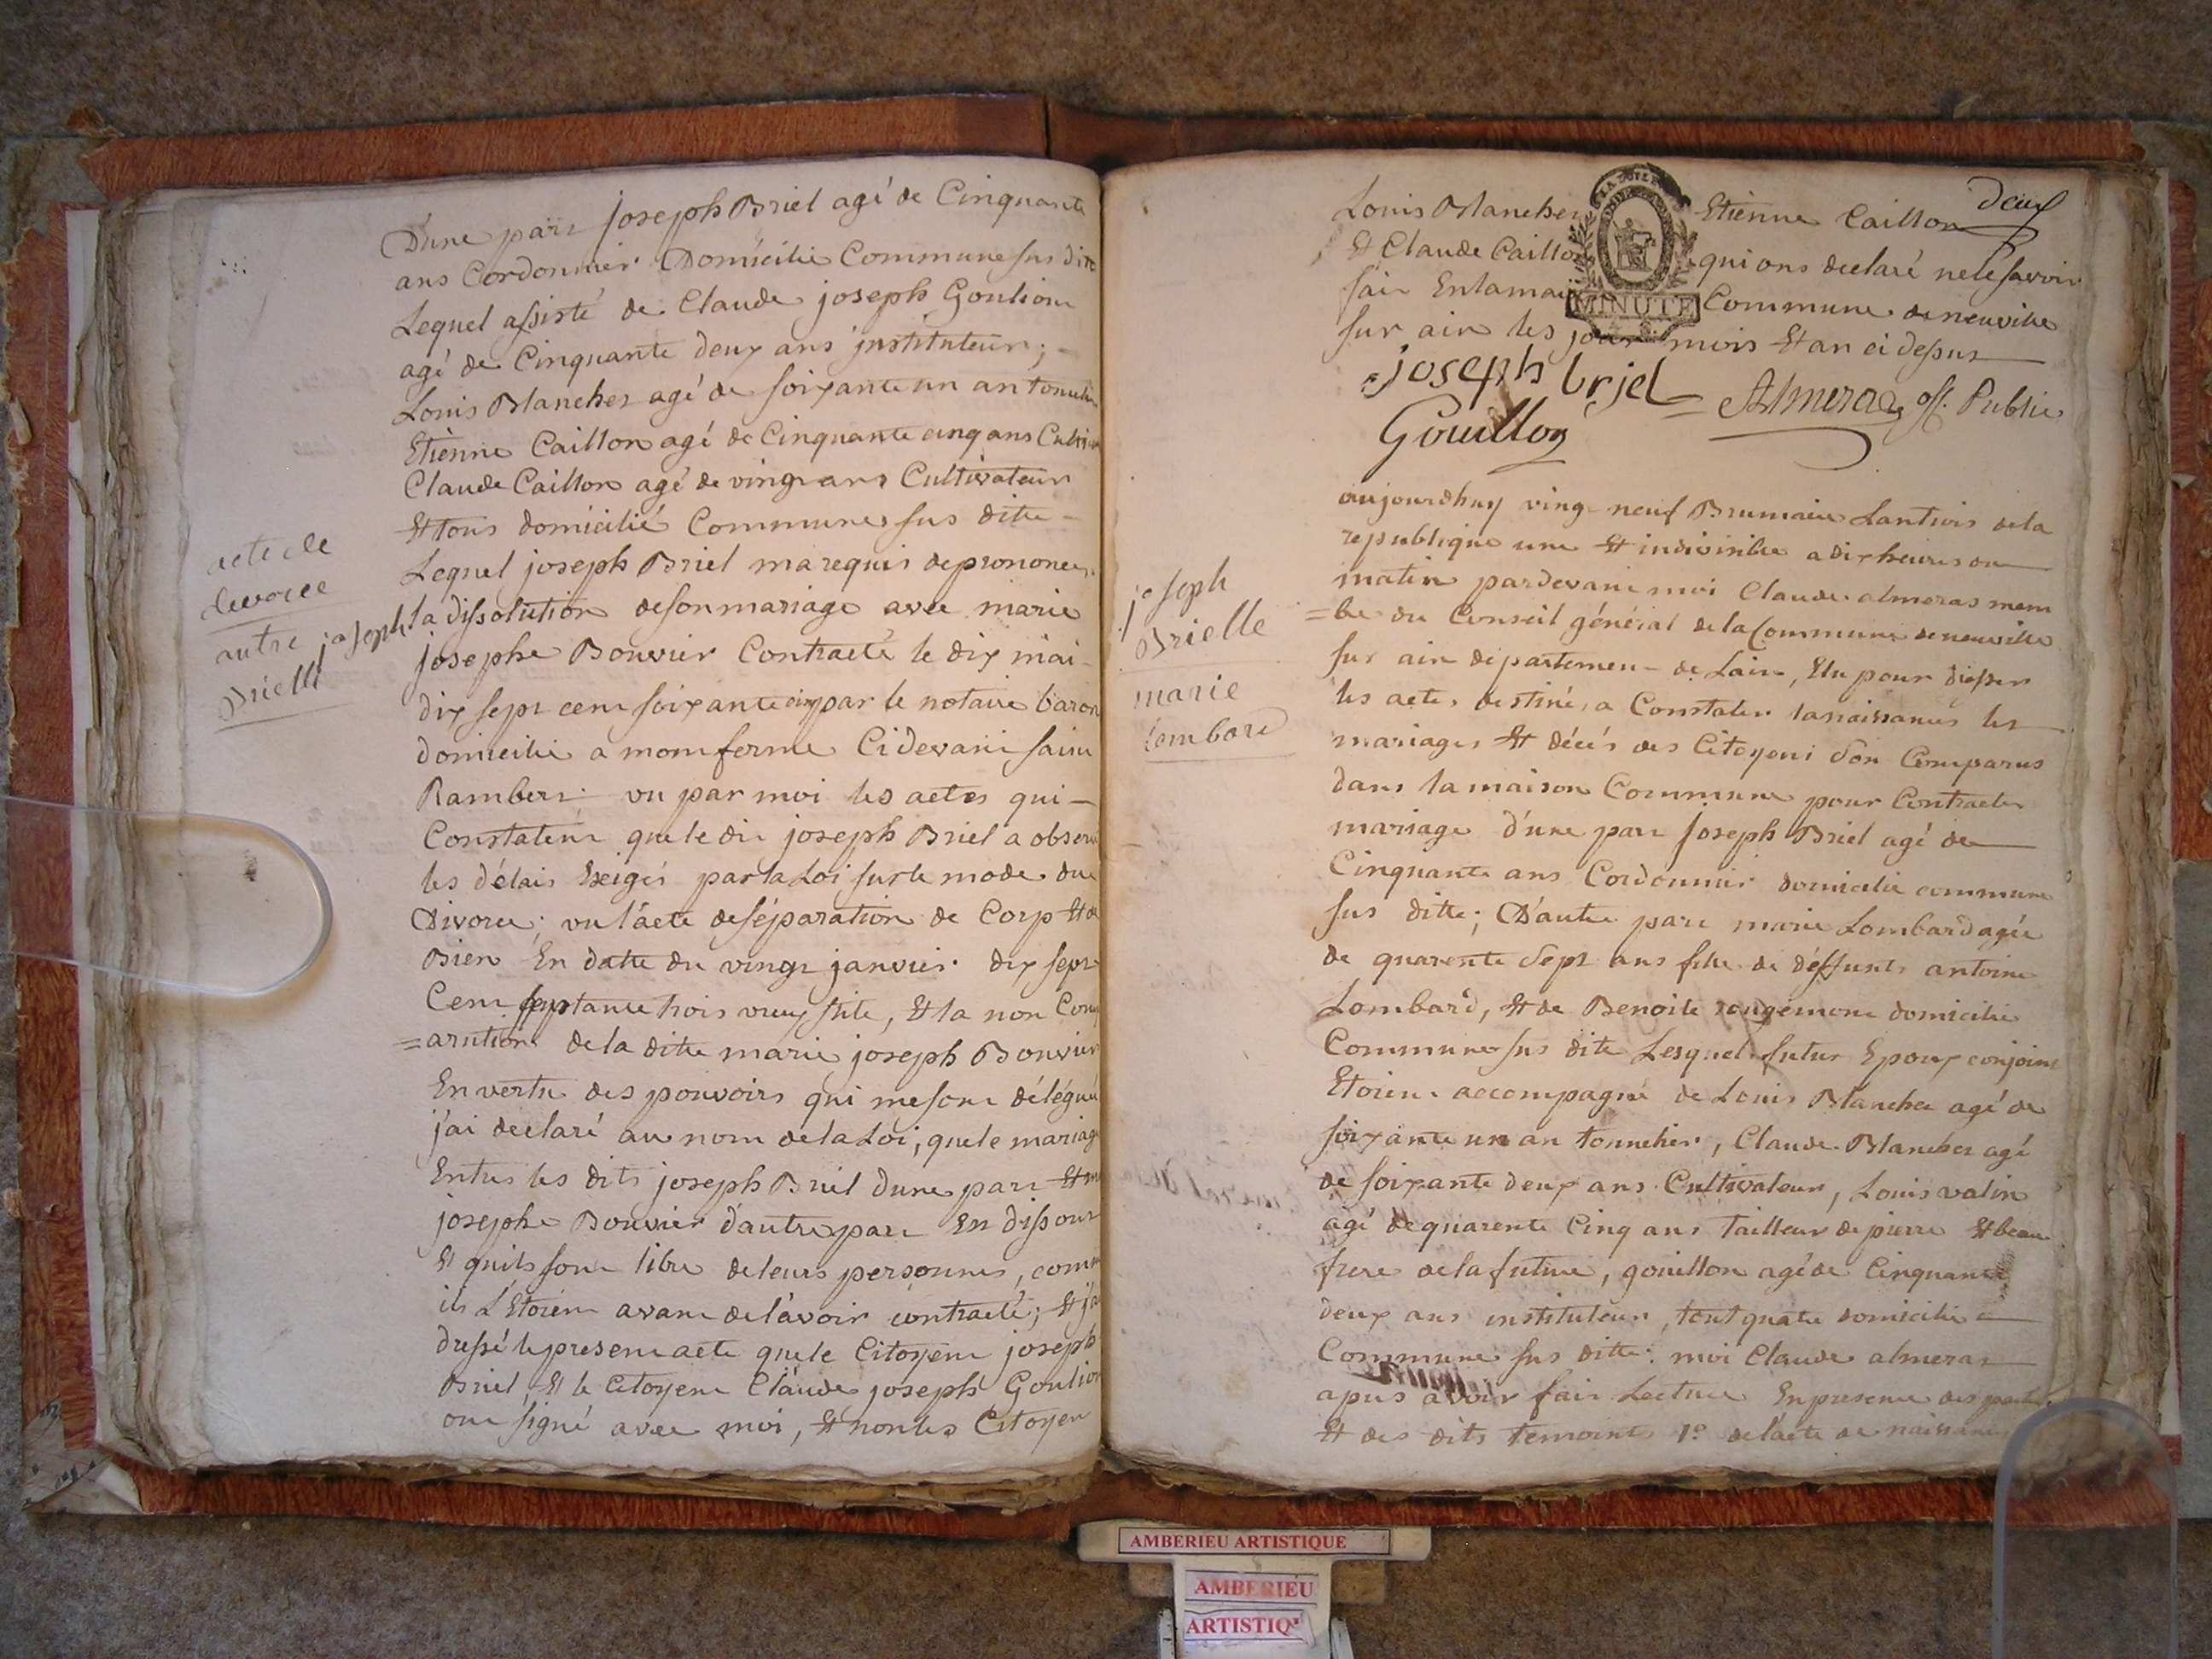 D'une part joseph Briel agé de Cinquante
ans Cordonnier Domicilié Commune sus dite
Lequel assisté de Claude joseph Goulion
agé de Cinquante deux ans jnstituteur; -
Louis Blanchet agé de soixante un an tonneli
Etienne Caillon agé de Cinquante cinq ans Cultiv
Claude Caillon agé de vingt ans Cultivateur
Et tous domicilié Commune sus ditte -
Lequel joseph Briel ma requis de prononcer
la dissolution de son mariage avec marie
josephe Bouvier Contracté le dix mai -
dix sept cent soixante cinq par le notaire baron
domicilié a montferme Cidevant saint
Rambert vu par moi les actes qui -
Constatent que le dit joseph Briel a observ
les délais Exigés par la Loi sur le mode du
Divorce; vu l'acte de séparation de Corp Et de
Bien En datte du vingt janvier dix sept
Cent septante trois vieux stile, Et la non Comp
=arution de la ditte marie joseph Bouvier
En vertu des pouvoirs qui me sont délégué
j'ai declaré au nom de la Loi, que le mariage
Entre les dits joseph Briel dune part Et m
josephe Bouvier d'autre part En dissout
Et quils sont libre de leurs personnes, comm
ils L'Etoient avant de l'avoir contracté; Et j'ai
dressé le present acte que le Citoyent joseph
Briel, Et le Citoyent Claude joseph Goulion
ont signé avec moi, Et non les Citoyen
acte de
divorce
autre joseph
Brielle
deux
Louis Blanchet Etienne Caillon
Et Claude Caillon qui ont declaré ne le savoir
fair En la mai Commune de neuville
sur ain les jour mois Et an ci dessus
MINUTE
joseph brjel Almeras off. Public
Gouillon
joseph
Brielle
marie
Lombard
aujourdhuy ving-neuf Brumaire Lantrois de la
republique une Et indivisible a dix heures du
matin pardevant moi Claude almeras mem
=bre du Conseil général de la Commune de neuville
sur ain départemen - de Lain, Elu pour dresser
les actes destinés a Constater la naissances les
mariages Et décés des Citoyens son Comparus
dans la maison Commune pour Contracter
mariage d'une part joseph Briel agé de
Cinquante ans Cordonnier domicilié commune
sus ditte; D'autre part marie Lombard agée
de quarente sept ans fille de déffunts antoine
Lombard, Et de Benoite rougemont domicilié
Commune sus dite Lesquel futur Epoux conjoint
Etoient accompagné de Louis Blanchet agé de
soixante un an tonnelier, Claude Blanchet agé
de soixante deux ans Cultivateur, Louis valin
agé de quarente Cinq ans Tailleur de pierre Et beau
frere de la future, gouillon agé de Cinquante
deux ans instituteur, tout quatre domicilié
Commune sus ditte: moi Claude almeras
apres avoir fair Lecture En presence des parties
Et des dits temoints 1º de l'acte de naissance
AMBERIEU ARTISTIQUE
AMBERIEU
ARTISTIQ